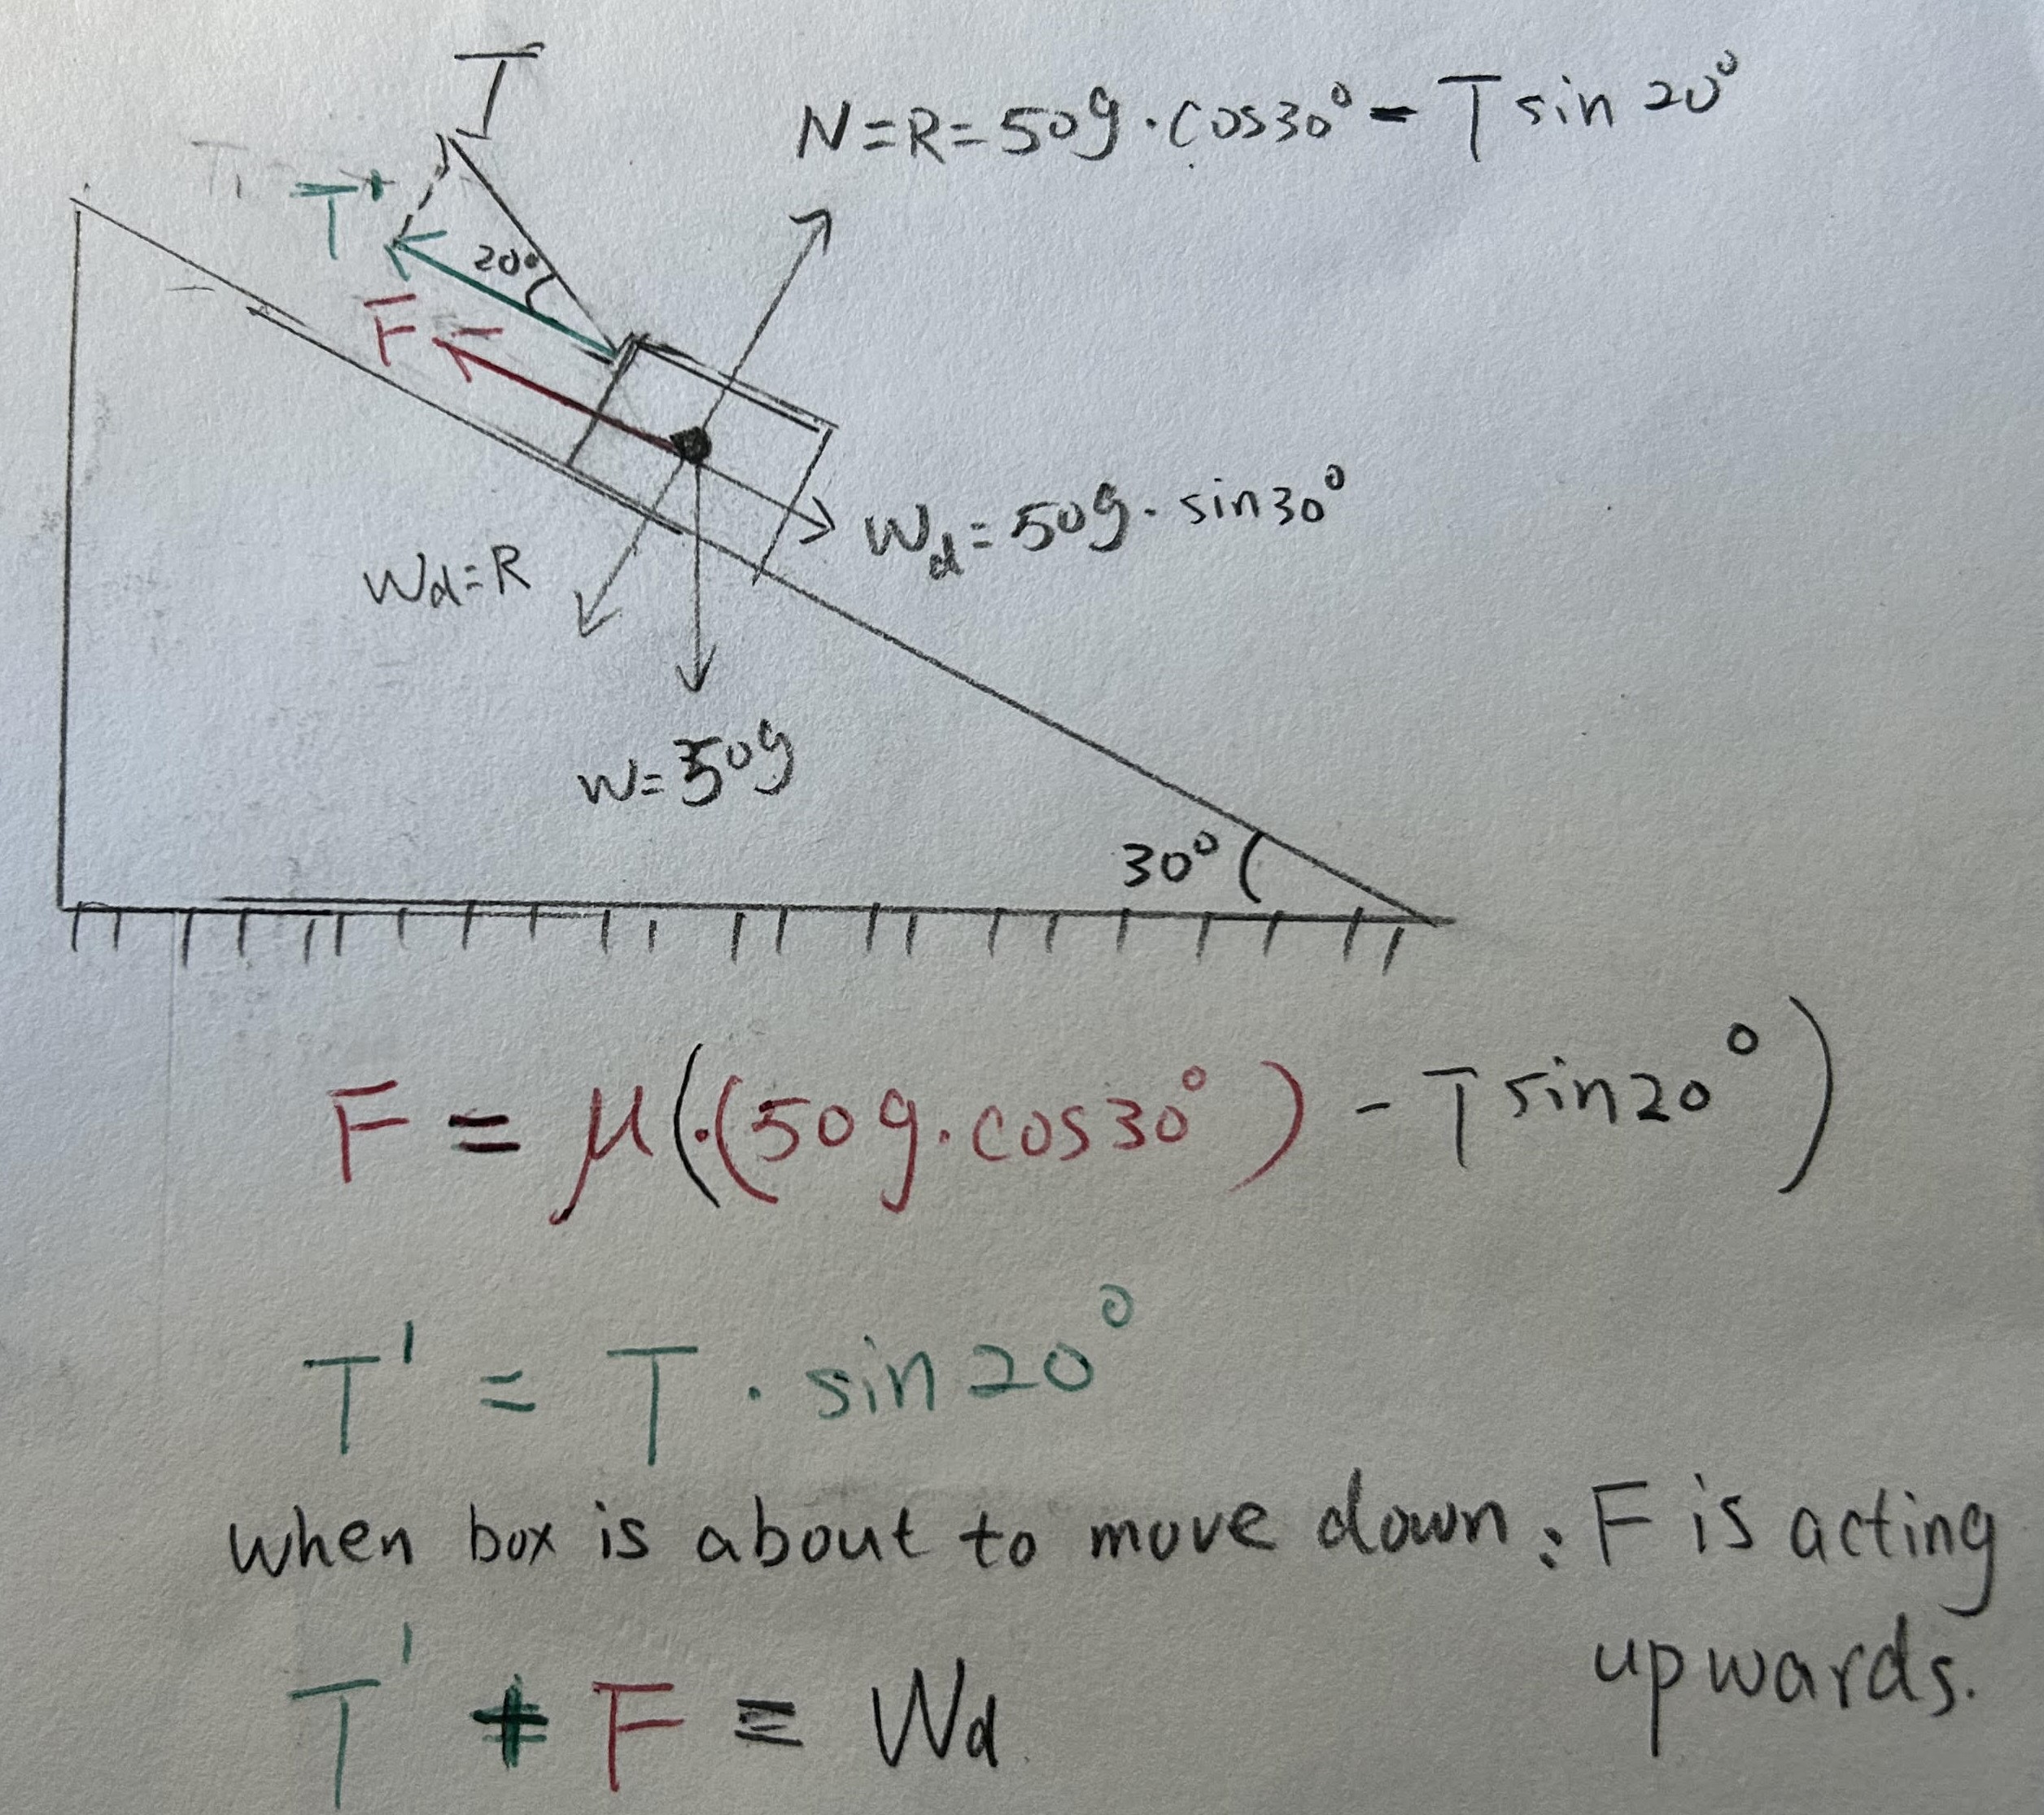 T
N=R=50g·cos30°- Tsin 20°
T'
20°
F
Wd=50g·sin30°
Wd=R
W=50g
30°
F = μ(·(50g·cos30°) - Tsin20°)
T' = T · sin20°
when box is about to move down: F is acting
upwards.
T' + F = Wd